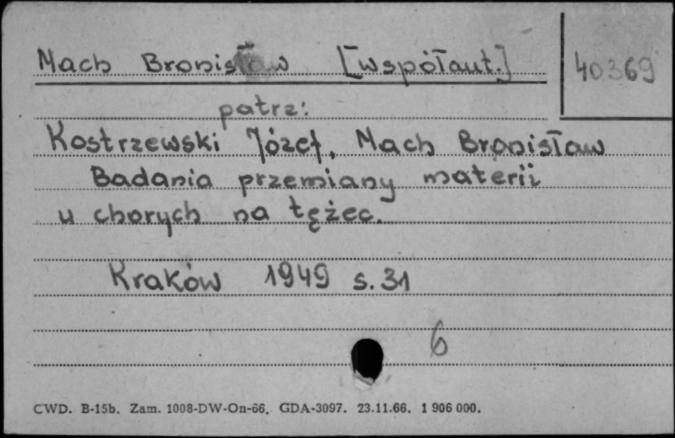 Mach Bronisław [współaut.]
40369
patrz:
Kostrzewski Józef, Mach Bronisław
Badania przemiany materii
u chorych na tężec.
Kraków 1949 s. 31
6
CWD. B-15b. Zam. 1008-DW-On-66. GDA-3097. 23.11.66. 1 906 000.